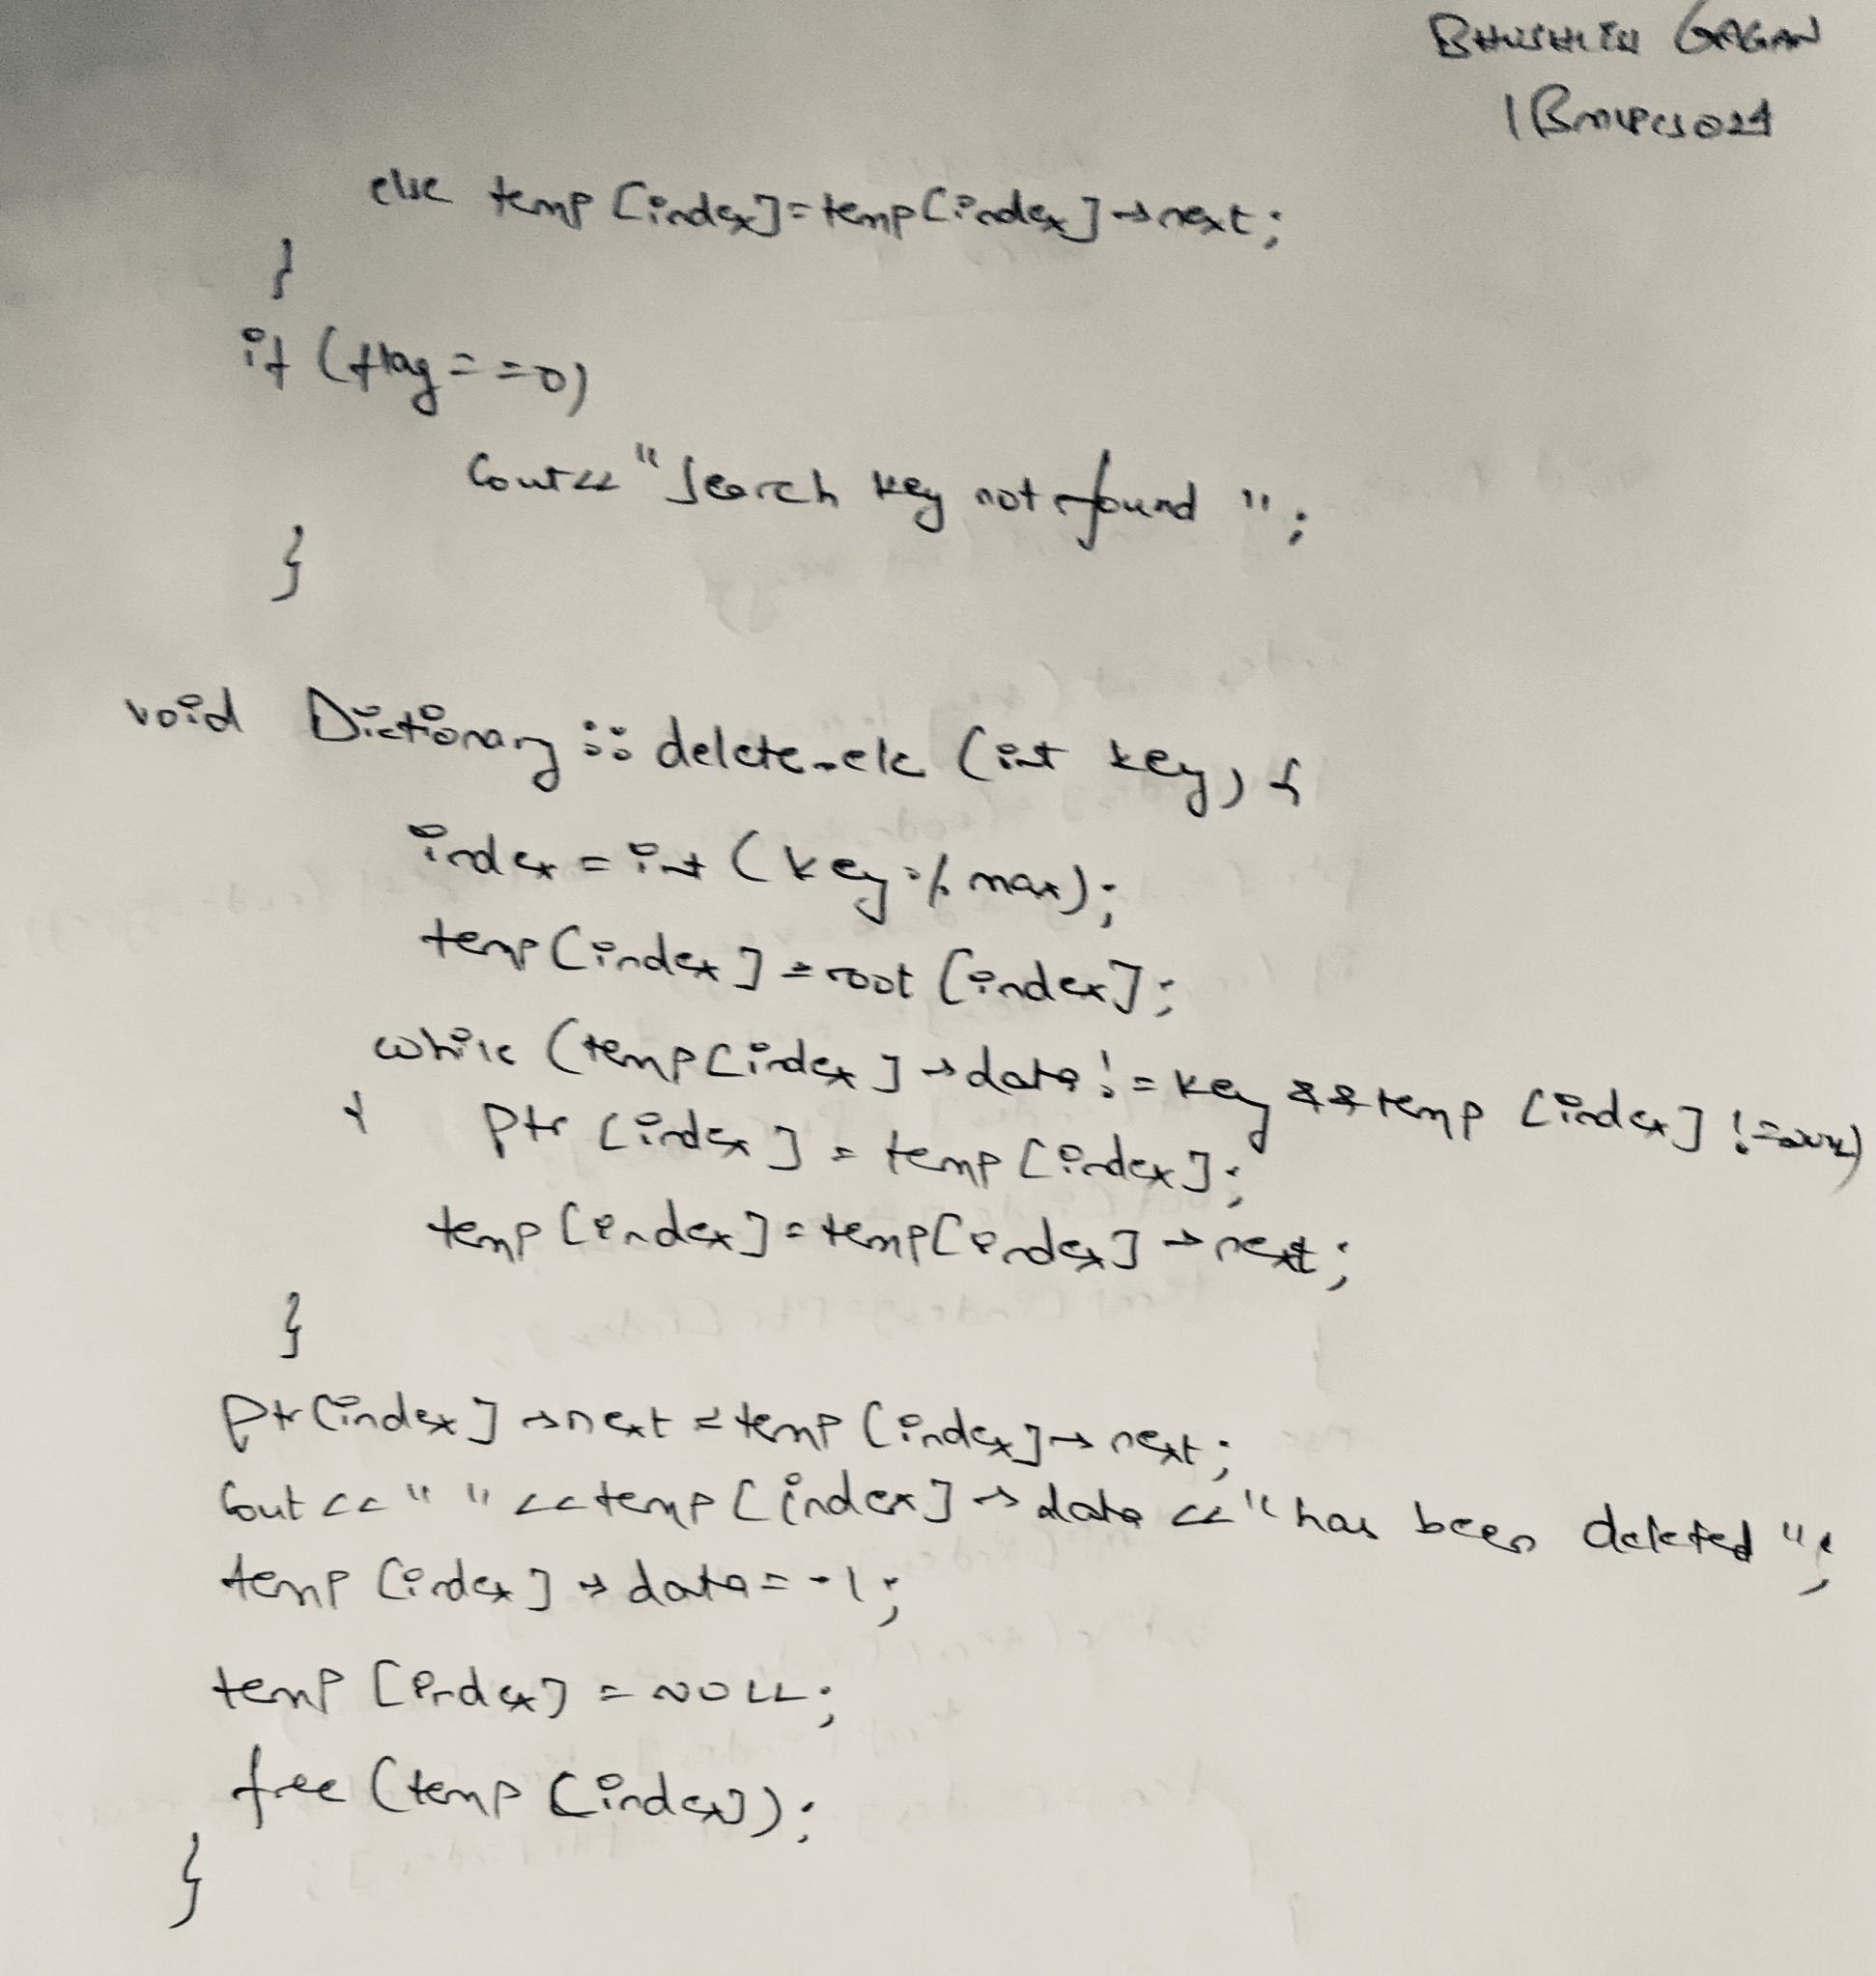 GAGAN
else temp [index]=temp[index]→next;
}
if (flag==0)
cout<<"Search key not found ";
}
void Dictionary::delete_ele (int key) {
index = int (key % max);
temp[index] = root [index];
while (temp[index]→data!=key && temp [index] !=NULL)
{ ptr [index] = temp [index];
temp [index]=temp[index]→next;
}
ptr[index]→next = temp [index]→next;
cout << " " <<temp [index]→data <<"has been deleted ";
temp [index]→data=-1;
temp [index] = NULL;
free (temp [index]);
}